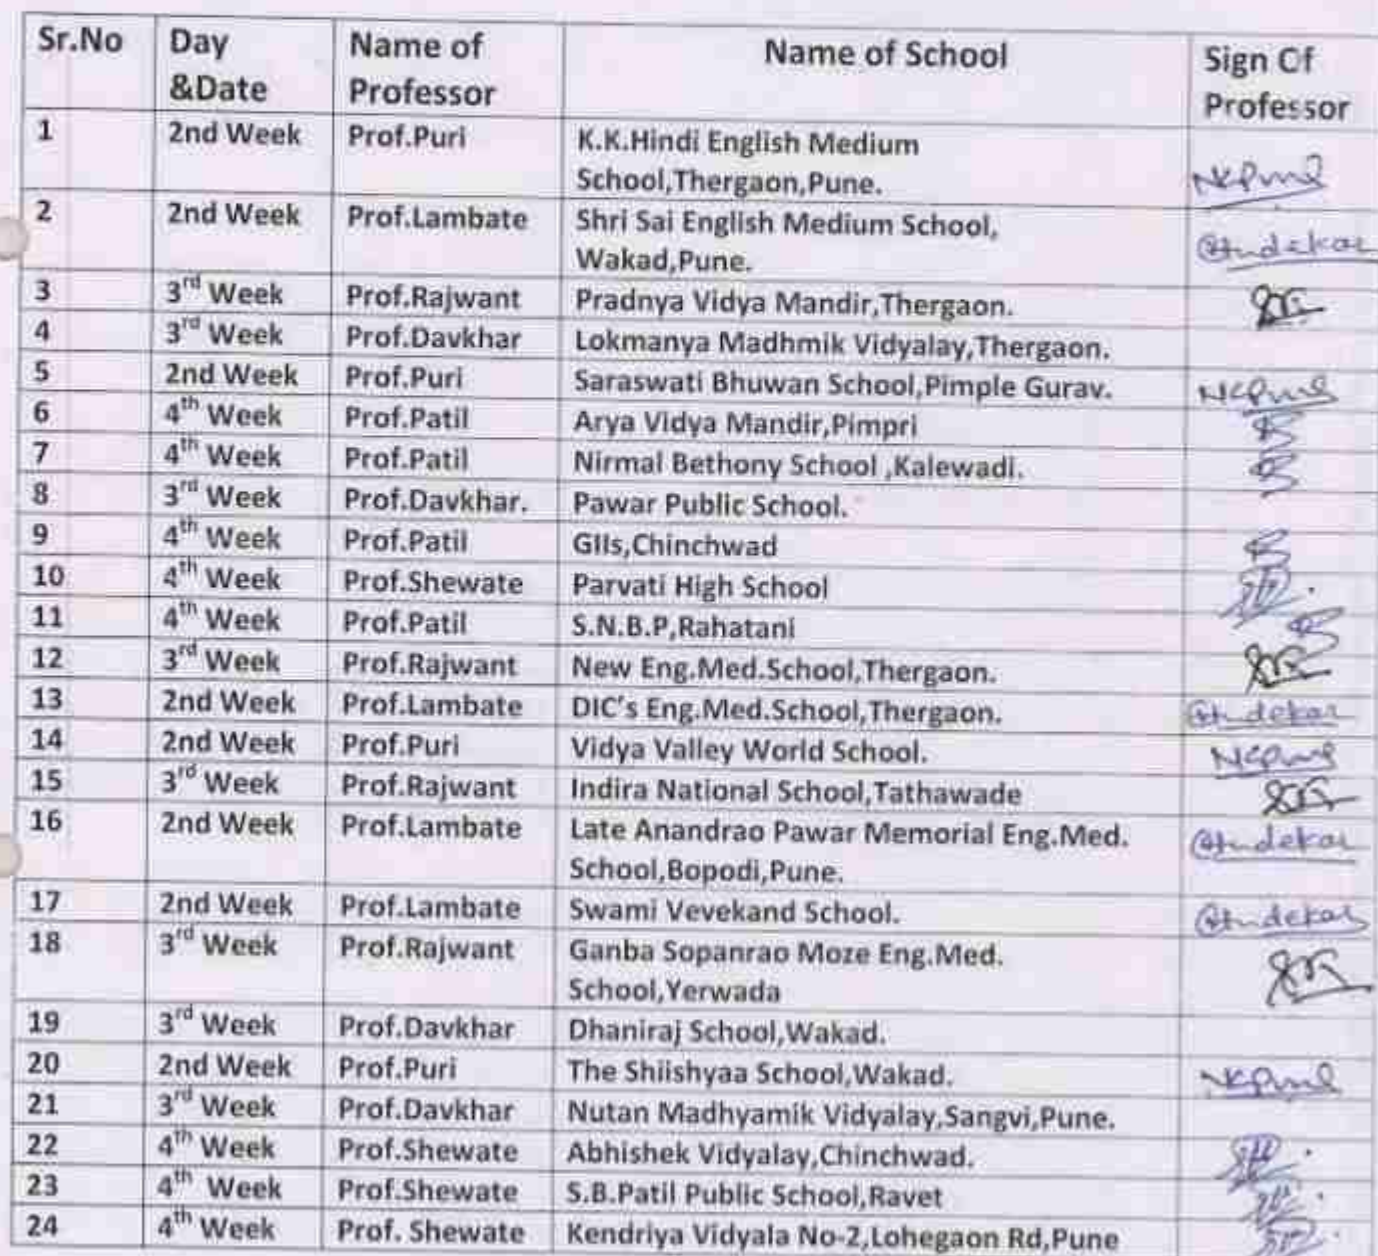 Sr.No Day &Date Name of Professor Name of School Sign Of Professor
1 2nd Week Prof.Puri K.K.Hindi English Medium School,Thergaon,Pune. NKPuri
2 2nd Week Prof.Lambate Shri Sai English Medium School, Wakad,Pune.
3 3rd Week Prof.Rajwant Pradnya Vidya Mandir,Thergaon.
4 3rd Week Prof.Davkhar Lokmanya Madhmik Vidyalay,Thergaon.
5 2nd Week Prof.Puri Saraswati Bhuwan School,Pimple Gurav. NKPuri
6 4th Week Prof.Patil Arya Vidya Mandir,Pimpri
7 4th Week Prof.Patil Nirmal Bethony School ,Kalewadi.
8 3rd Week Prof.Davkhar. Pawar Public School.
9 4th Week Prof.Patil GIIs,Chinchwad
10 4th Week Prof.Shewate Parvati High School
11 4th Week Prof.Patil S.N.B.P,Rahatani
12 3rd Week Prof.Rajwant New Eng.Med.School,Thergaon.
13 2nd Week Prof.Lambate DIC's Eng.Med.School,Thergaon.
14 2nd Week Prof.Puri Vidya Valley World School. NKPuri
15 3rd Week Prof.Rajwant Indira National School,Tathawade
16 2nd Week Prof.Lambate Late Anandrao Pawar Memorial Eng.Med. School,Bopodi,Pune.
17 2nd Week Prof.Lambate Swami Vevekand School.
18 3rd Week Prof.Rajwant Ganba Sopanrao Moze Eng.Med. School,Yerwada
19 3rd Week Prof.Davkhar Dhaniraj School,Wakad.
20 2nd Week Prof.Puri The Shiishyaa School,Wakad. NKPuri
21 3rd Week Prof.Davkhar Nutan Madhyamik Vidyalay,Sangvi,Pune.
22 4th Week Prof.Shewate Abhishek Vidyalay,Chinchwad.
23 4th Week Prof.Shewate S.B.Patil Public School,Ravet
24 4th Week Prof. Shewate Kendriya Vidyala No-2,Lohegaon Rd,Pune